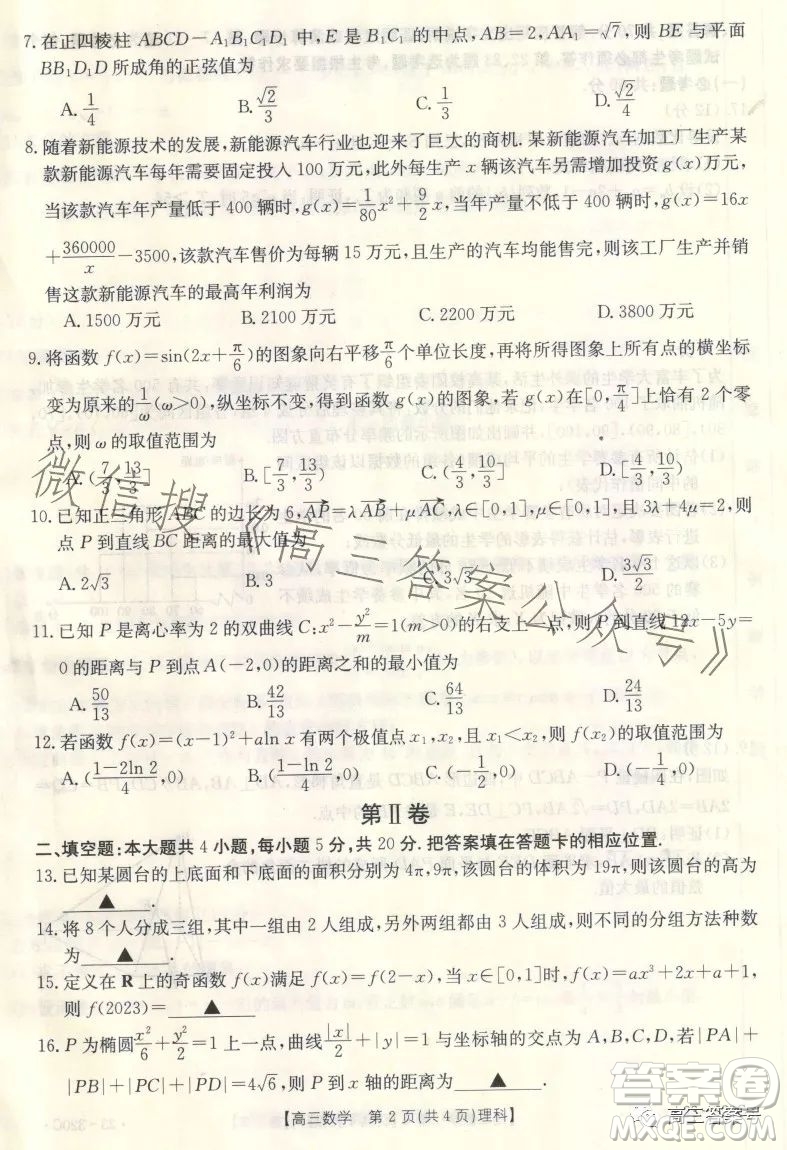 7. 在正四棱柱 ABCD－A₁B₁C₁D₁ 中，E 是 B₁C₁ 的中点，AB=2，AA₁=√7，则 BE 与平面
BB₁D₁D 所成角的正弦值为
A. 1/4 B. √2/3 C. 1/3 D. √2/4
8. 随着新能源技术的发展，新能源汽车行业也迎来了巨大的商机. 某新能源汽车加工厂生产某
款新能源汽车每年需要固定投入 100 万元，此外每生产 x 辆该汽车另需增加投资 g(x)万元，
当该款汽车年产量低于 400 辆时，g(x)=1/80x²+9/2x，当年产量不低于 400 辆时，g(x)=16x
+360000/x−3500，该款汽车售价为每辆 15 万元，且生产的汽车均能售完，则该工厂生产并销
售这款新能源汽车的最高年利润为
A. 1500 万元 B. 2100 万元 C. 2200 万元 D. 3800 万元
9. 将函数 f(x)=sin(2x+π/6)的图象向右平移π/6个单位长度，再将所得图象上所有点的横坐标
变为原来的1/ω(ω>0)，纵坐标不变，得到函数 g(x)的图象. 若 g(x)在[0,π/4]上恰有 2 个零
点，则 ω 的取值范围为
A. (7/3,13/3] B. [7/3,13/3) C. (4/3,10/3] D. [4/3,10/3)
10. 已知正三角形 ABC 的边长为 6，AP=λAB+μAC，λ∈[0,1]，μ∈[0,1]，且 3λ+4μ=2，则
点 P 到直线 BC 距离的最大值为
A. 2√3 B. 3 C. 3√3 D. 3√3/2
11. 已知 P 是离心率为 2 的双曲线 C:x²−y²/m=1(m>0)的右支上一点，则 P 到直线 12x−5y=
0 的距离与 P 到点 A(−2,0)的距离之和的最小值为
A. 50/13 B. 42/13 C. 64/13 D. 24/13
12. 若函数 f(x)=(x−1)²+aln x 有两个极值点 x₁,x₂，且 x₁<x₂，则 f(x₂)的取值范围为
A. ((1−2ln 2)/4,0) B. ((−1+ln 2)/2,0) C. (−1/2,0) D. (−1/4,0)
第Ⅱ卷
二、填空题：本大题共 4 小题，每小题 5 分，共 20 分. 把答案填在答题卡的相应位置.
13. 已知某圆台的上底面和下底面的面积分别为 4π，9π，该圆台的体积为 19π，则该圆台的高为
▲ .
14. 将 8 个人分成三组，其中一组由 2 人组成，另外两组都由 3 人组成，则不同的分组方法种数
为 ▲ .
15. 定义在 R 上的奇函数 f(x)满足 f(x)=f(2−x)，当 x∈[0,1]时，f(x)=ax³+2x+a+1，
则 f(2023)= ▲
16. P 为椭圆x²/6+y²/2=1 上一点，曲线|x|/2+|y|=1 与坐标轴的交点为 A,B,C,D，若|PA|+
|PB|+|PC|+|PD|=4√6，则 P 到 x 轴的距离为 ▲ .
【高三数学 第 2 页(共 4 页)理科】
微信搜《高三答案公众号》
答案圈
高三答案号